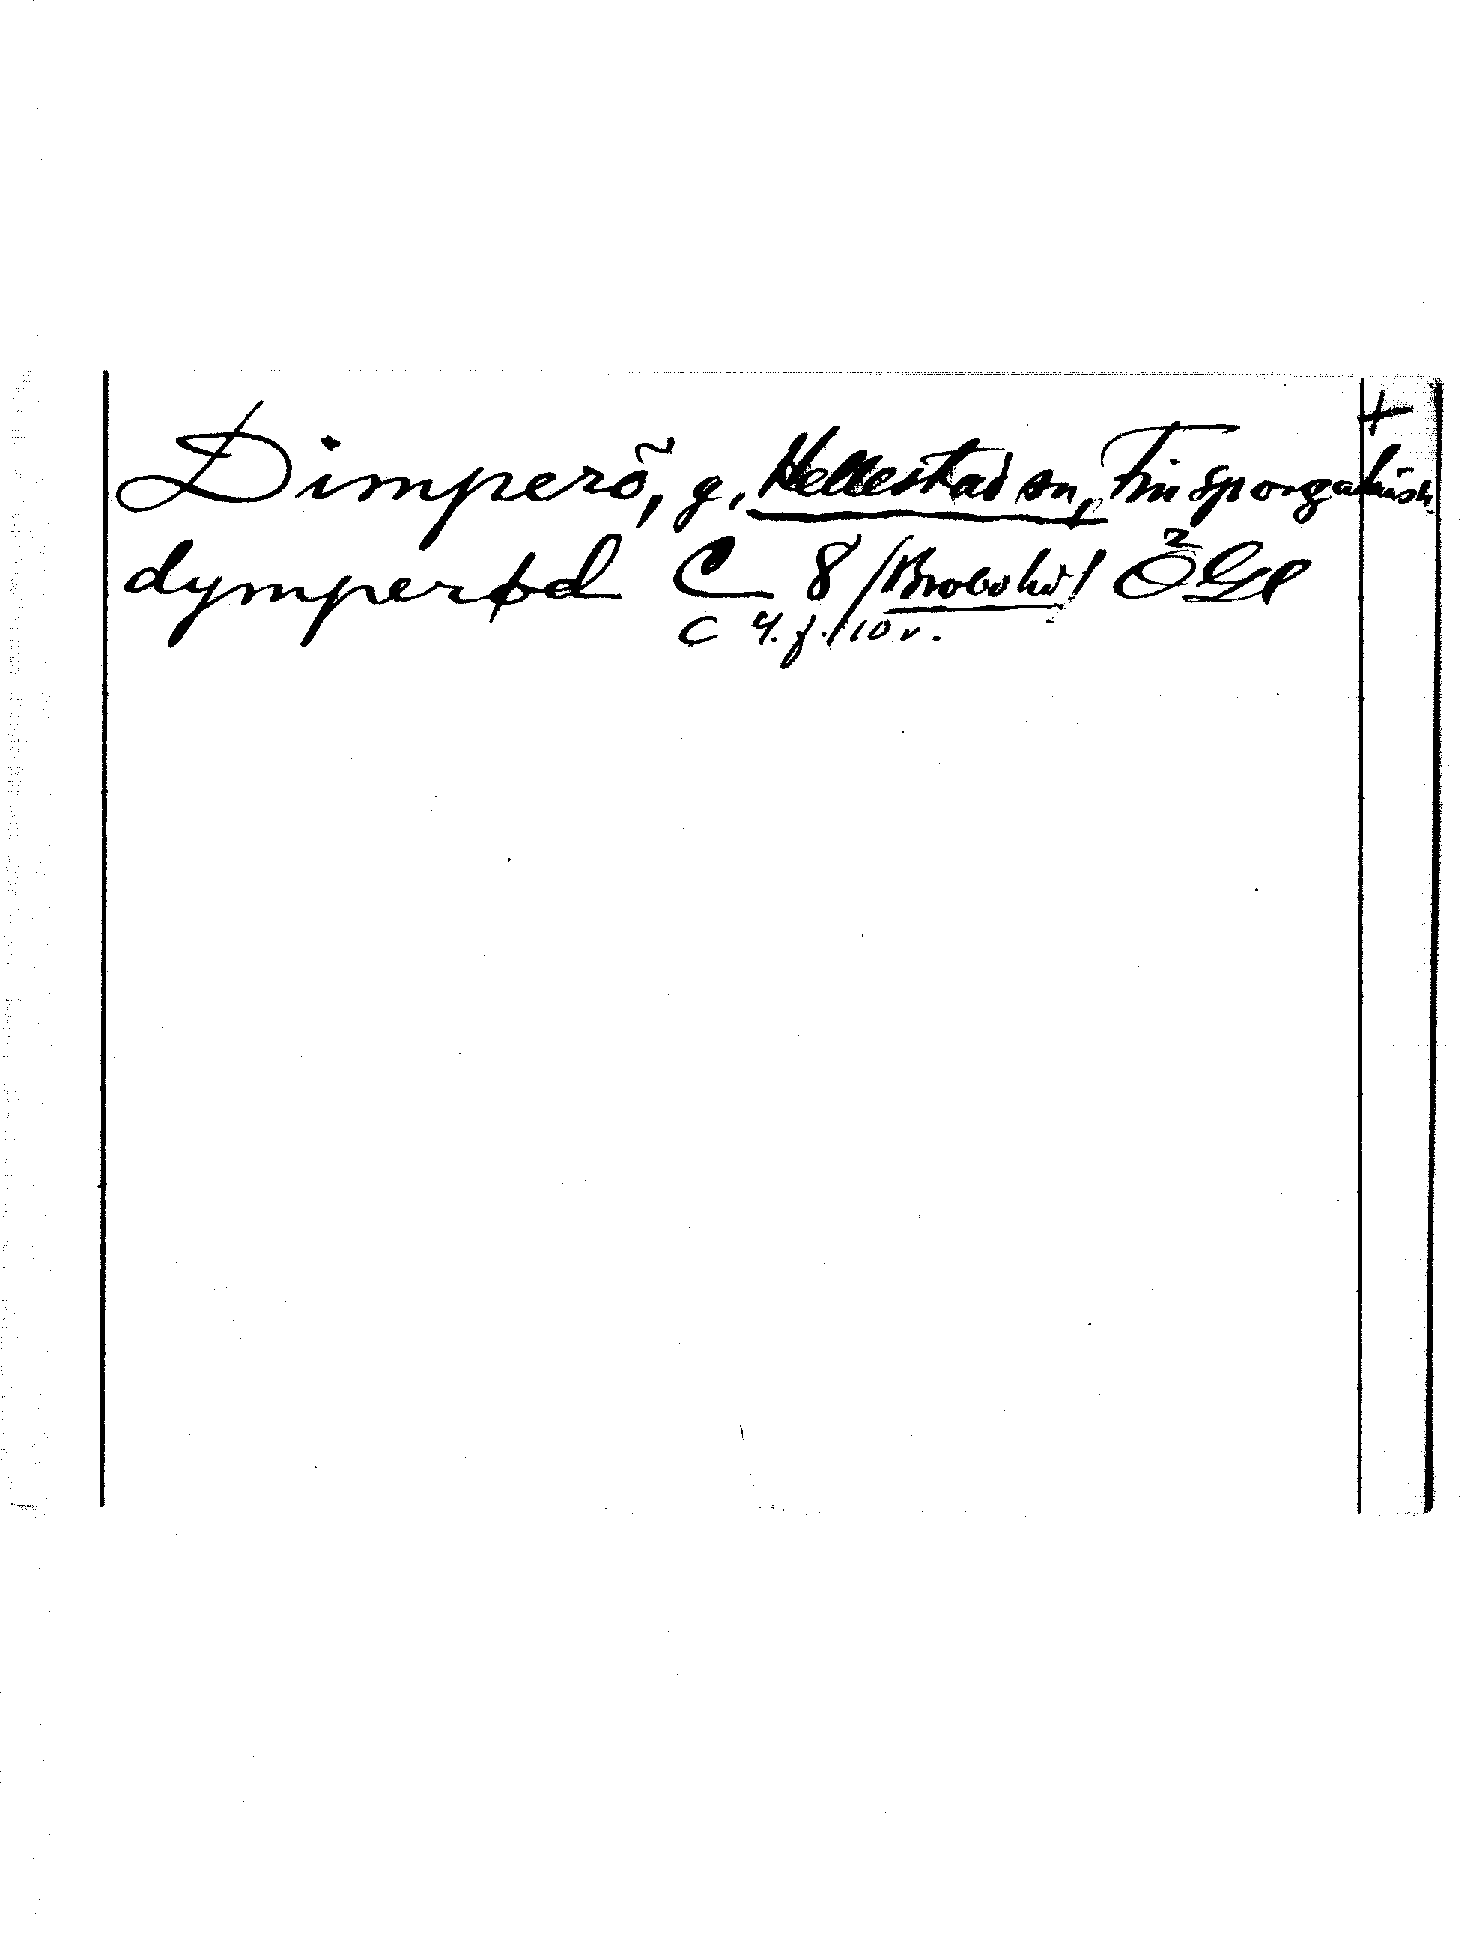 +
Dimperö, g, Hellestad sn, Finsporgaläns h
dymperød C 8 /Brobo hd/ ÖGl
C 4. f. 110 v.